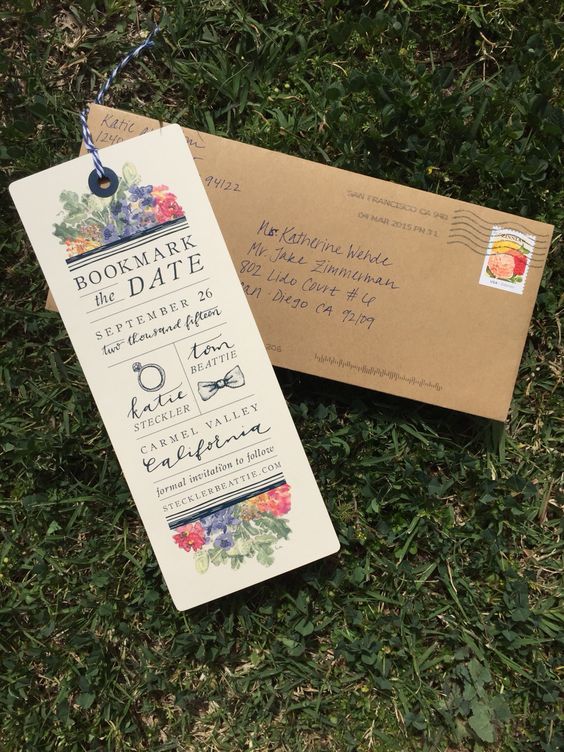 BOOKMARK
the DATE
SEPTEMBER 26
two thousand fifteen
katie
STECKLER
tom
BEATTIE
CARMEL VALLEY
California
formal invitation to follow
STECKLERBEATTIE.COM
Katie
94122
SAN FRANCISCO CA 940
04 MAR 2015 PM 3 L
Ms. Katherine Wehde
Mr. Jake Zimmerman
802 Lido Court # 6
San Diego CA 92109